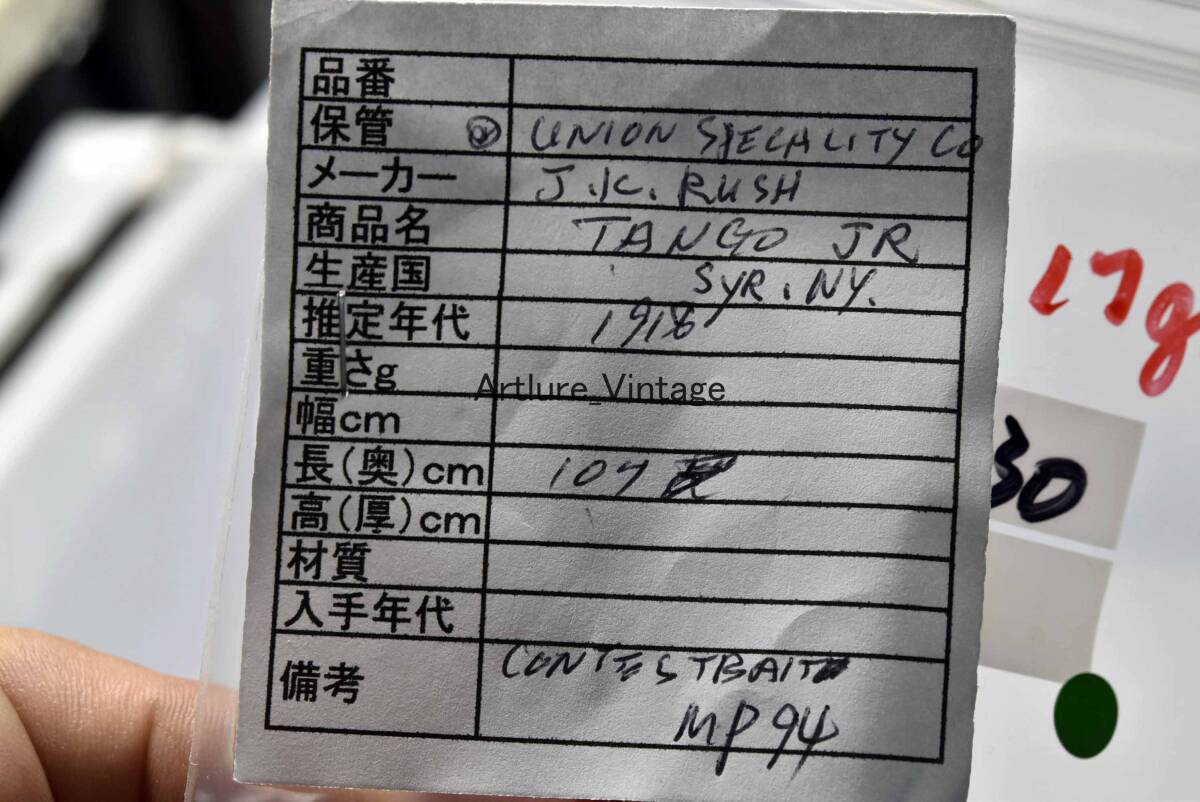 品番
保管 UNION SPECALITY CO
メーカー J.K. RUSH
商品名 TANGO JR
生産国 SYR. NY.
推定年代 1918
重さg
幅cm
長(奥)cm 104
高(厚)cm
材質
入手年代
備考 CONTEST BAIT
MP 94
17g
30
Artlure_Vintage